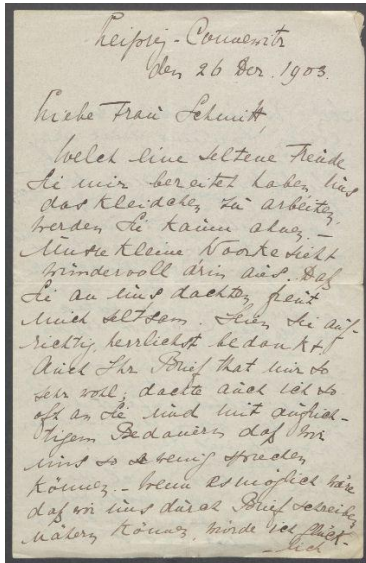 Leipzig-Connewitz
den 26 Dez. 1903.
Liebe Frau Schmitt,
Welch eine seltene Freude
Sie mir bereitet haben, uns
das Kleidchen zu arbeiten,
werden Sie kaum ahnen. –
Unsere kleine sieht
wundervoll drin aus. Daß
Sie an uns dachten freut
mich seltsam. Seien Sie auf-
richtig, herzlichst bedankt.
Auch Ihr Brief that mir so
sehr wohl; dachte auch ich so
oft an Sie und mit
Bedauern daß wir
uns so wenig sprechen
können. – Wenn es möglich wäre
daß wir uns durch Brief schreiben
nähern können würde ich glück-
lich